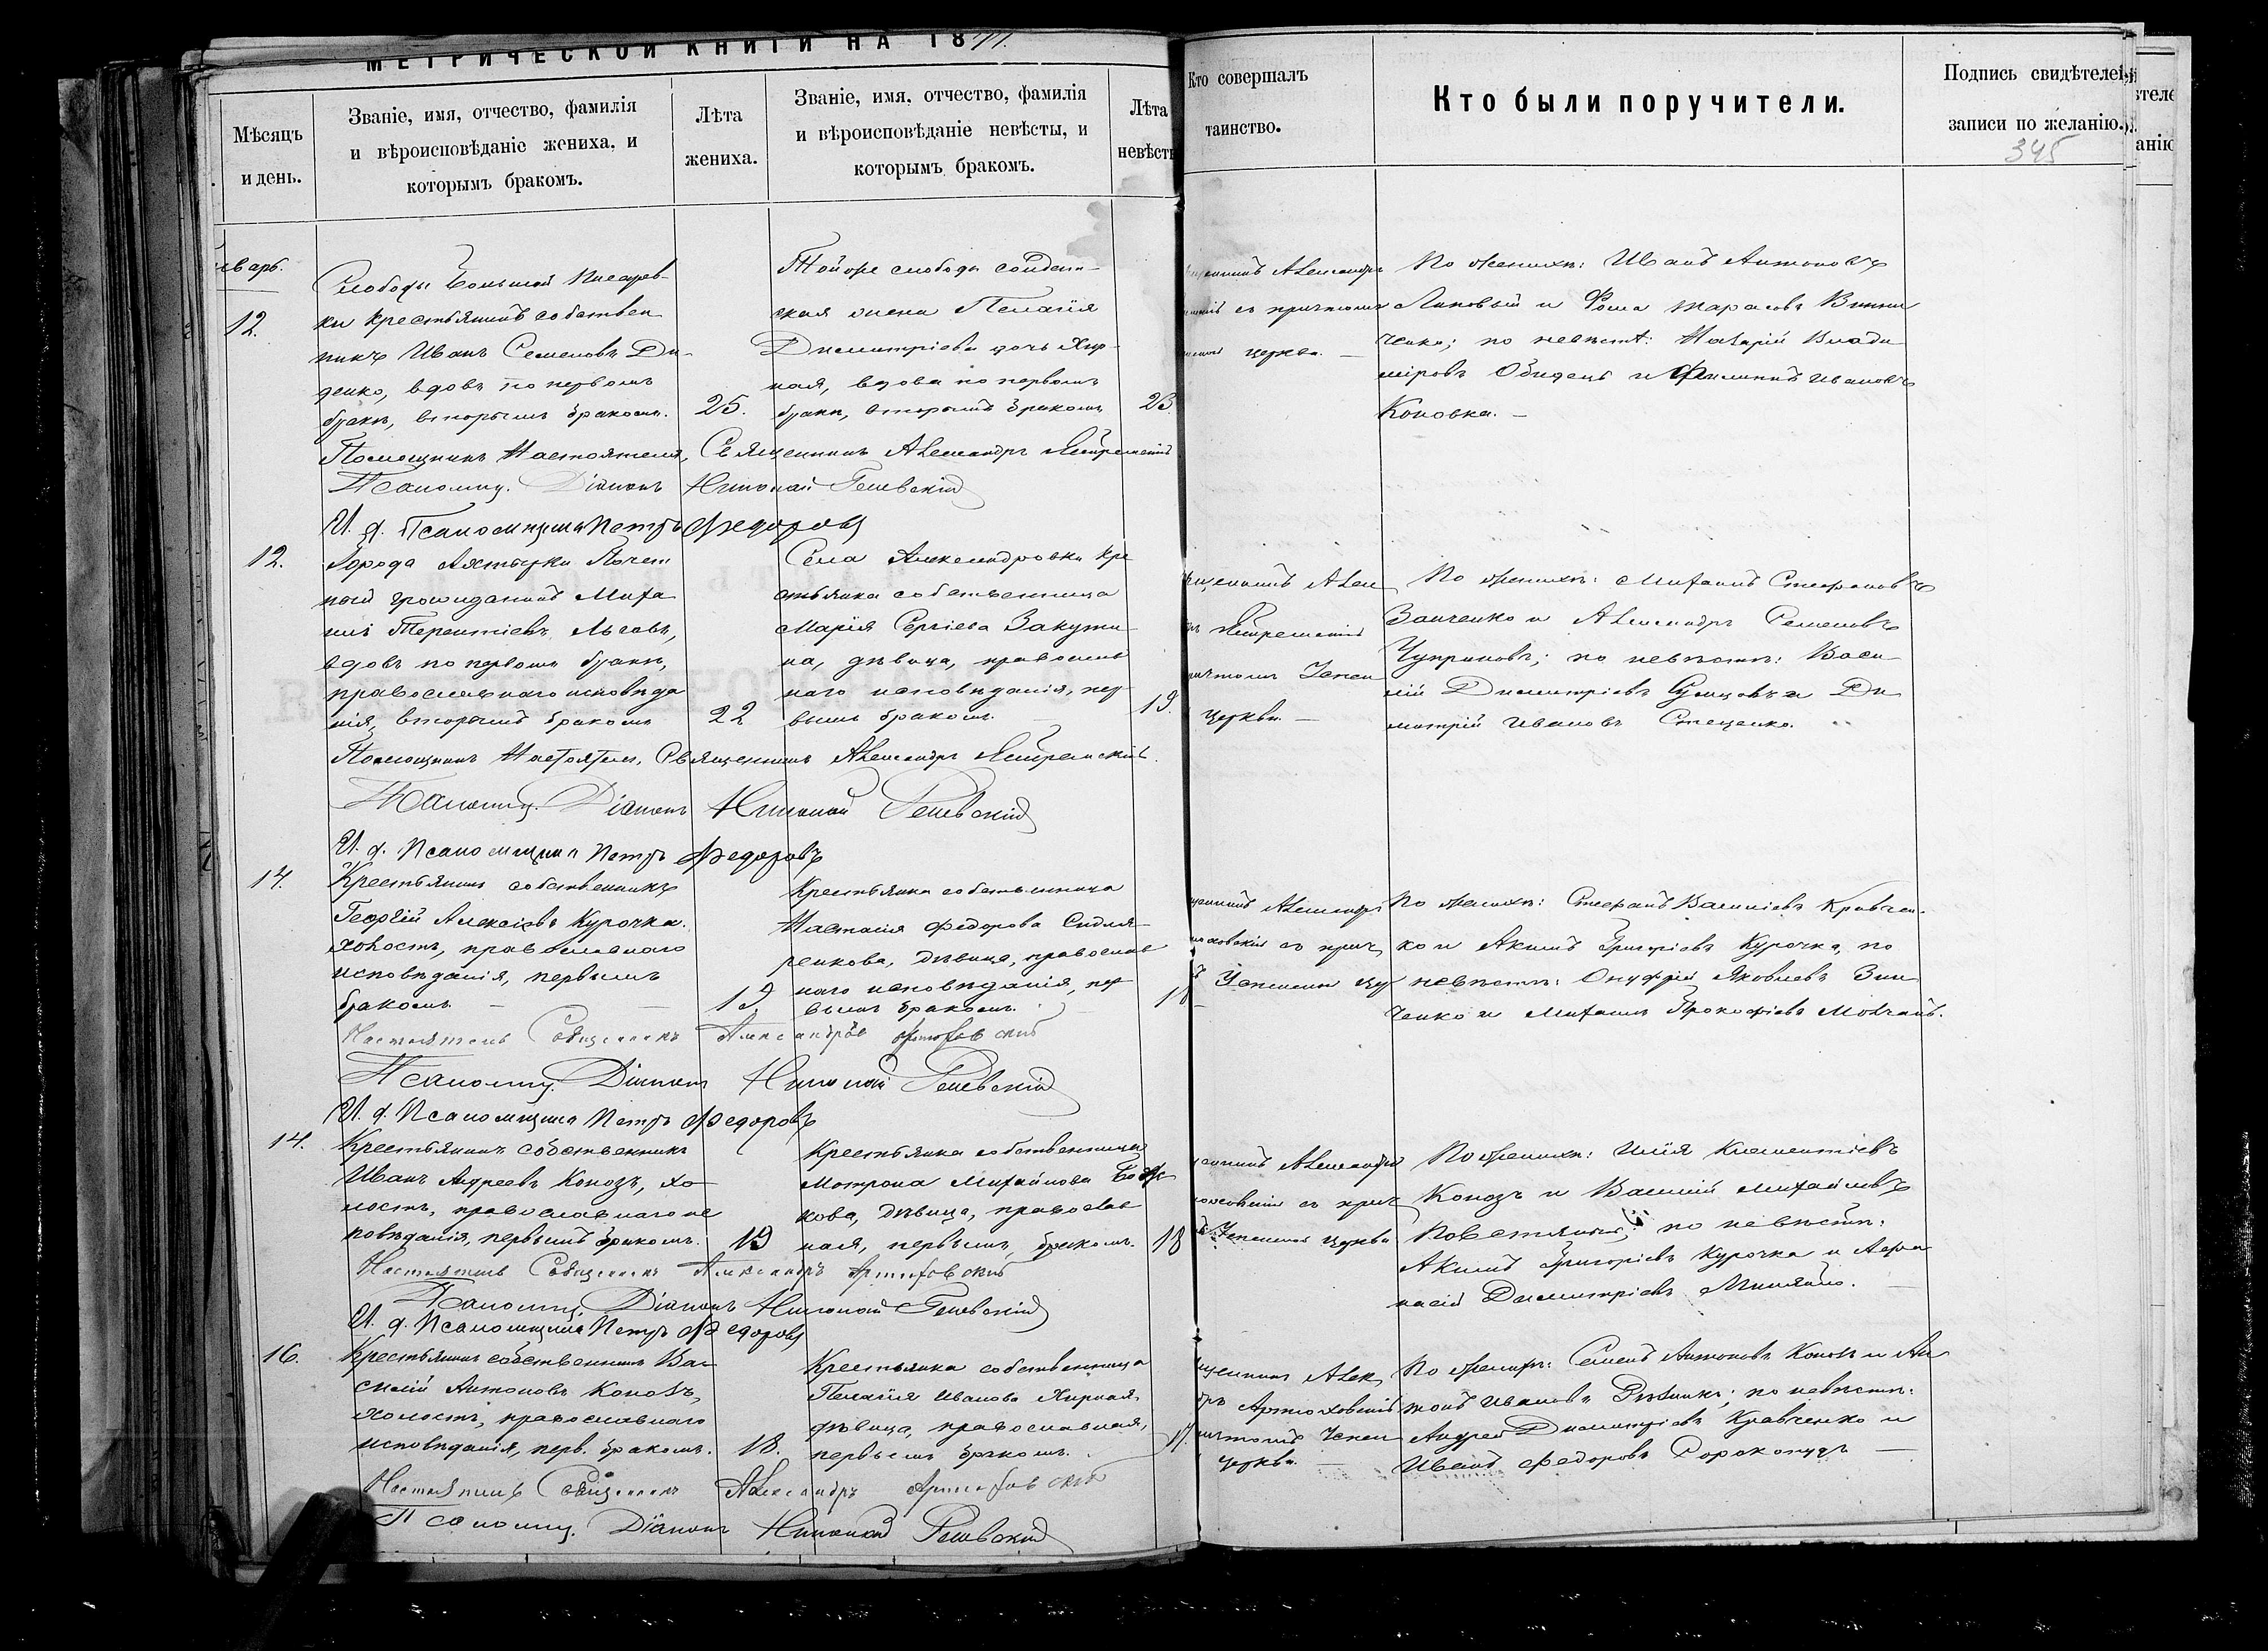 МЕТРИЧЕСКОЙ КНИГИ НА 1877.
Мѣсяцъ
и день.
Званіе, имя, отчество, фамилія
и вѣроисповѣданіе жениха, и
которымъ бракомъ.
Лѣта
жениха.
Званіе, имя, отчество, фамилія
и вѣроисповѣданіе невѣсты, и
которымъ бракомъ.
Лѣта
невѣсты
Кто совершалъ
таинство.
Кто были поручители.
Подпись свидѣтелей
записи по желанію.
345
варь.
12.
Слободы Большой Писарев-
ки крестьянинъ собствен
никъ Иванъ Семеновъ Ди
денко, вдовъ по первомъ
бракѣ, вторымъ бракомъ.
25.
Тойже слободы солдат-
ская жена Пелагія
Димитріева дочь Жир-
ная, вдова по первомъ
бракѣ, вторымъ бракомъ
23.
Александръ
съ причтомъ
церкви.
По женихѣ: Иванъ Антоновъ
Липовый и Фома Тарасовъ Винни
ченко; по невѣстѣ: Назарій Влади
міровъ Обидецъ и Филиппъ Ивановъ
Коновка.
Помощникъ Настоятеля, Священникъ Александръ Ястремскій
Псаломщ. Діаконъ Николай Гешевскій
И. д. Псаломщика Петръ Федоровъ
12.
Города Ахтырки Почет
ный гражданинъ Миха
илъ Терентіевъ Льговъ,
вдовъ по первомъ бракѣ,
православнаго исповѣда
нія, вторымъ бракомъ
22
Села Александровки кре
стьянка собственница
Марія Сергіева Закути
на, дѣвица, православ
наго исповѣданія, пер
вымъ бракомъ.
19.
Алек
Ястремскій
причтомъ Успен
церкви.
По женихѣ: Михаилъ Стефановъ
Заиченко и Александръ Семеновъ
Чуприновъ; по невѣстѣ: Васи
лій Димитріевъ Сумцовъ и Ди
митрій Ивановъ Стеценко.
Помощникъ Настоятеля, Священникъ Александръ Ястремскій.
Псаломщ. Діаконъ Николай Гешевскій
И. д. Псаломщика Петръ Федоровъ
14.
Крестьянинъ собственникъ
Георгій Алексіевъ Курочка.
холостъ, православнаго
исповѣданія, первымъ
бракомъ.
19
Крестьянка собственница
Настасія Федорова Сидля-
ренкова, дѣвица, православ
наго исповѣданія, пер
вымъ бракомъ.
Александръ
съ прич
Успенской цер
По женихѣ: Стефанъ Василіевъ Кравчен-
ко и Акимъ Григоріевъ Курочка, по
невѣстѣ: Онуфрій Яковлевъ Зин
ченко и Михаилъ Прокофіевъ Мовчанъ.
Настоятель Священникъ Александръ Артюховскій
Псаломщ. Діаконъ Николай Гешевскій
И. д. Псаломщика Петръ Федоровъ
14.
Крестьянинъ собственникъ
Иванъ Андреевъ Конозъ, хо
лостъ, православнаго ис
повѣданія, первымъ бракомъ.
19
Крестьянка собственница
Мотрона Михайлова
кова, дѣвица, православ
ная, первымъ бракомъ.
18
Александръ
съ прич
Успенской церкви
По женихѣ: Илія Климентіевъ
Конозъ и Василій Михайловъ
по невѣстѣ:
Акимъ Григоріевъ Курочка и Афа
насій Димитріевъ
Настоятель Священникъ Александръ Артюховскій
Псаломщ. Діаконъ Николай Гешевскій
И. д. Псаломщика Петръ Федоровъ
16.
Крестьянинъ собственникъ Ва
силій Антоновъ Конозъ,
холостъ, православнаго
исповѣданія, перв. бракомъ.
18.
Крестьянка собственница
Пелагія Иванова Жирная
дѣвица, православная,
первымъ бракомъ.
17.
Алек
Артюховскій
причтомъ Успен
церкви.
По женихѣ: Семенъ Антоновъ Конозъ и Ан
тонъ Ивановъ Рѣзникъ; по невѣстѣ:
Андрей Димитріевъ Кравченко и
Иванъ Федоровъ Сорокопудъ
Настоятель Священникъ Александръ Артюховскій
Псаломщ. Діаконъ Николай Гешевскій